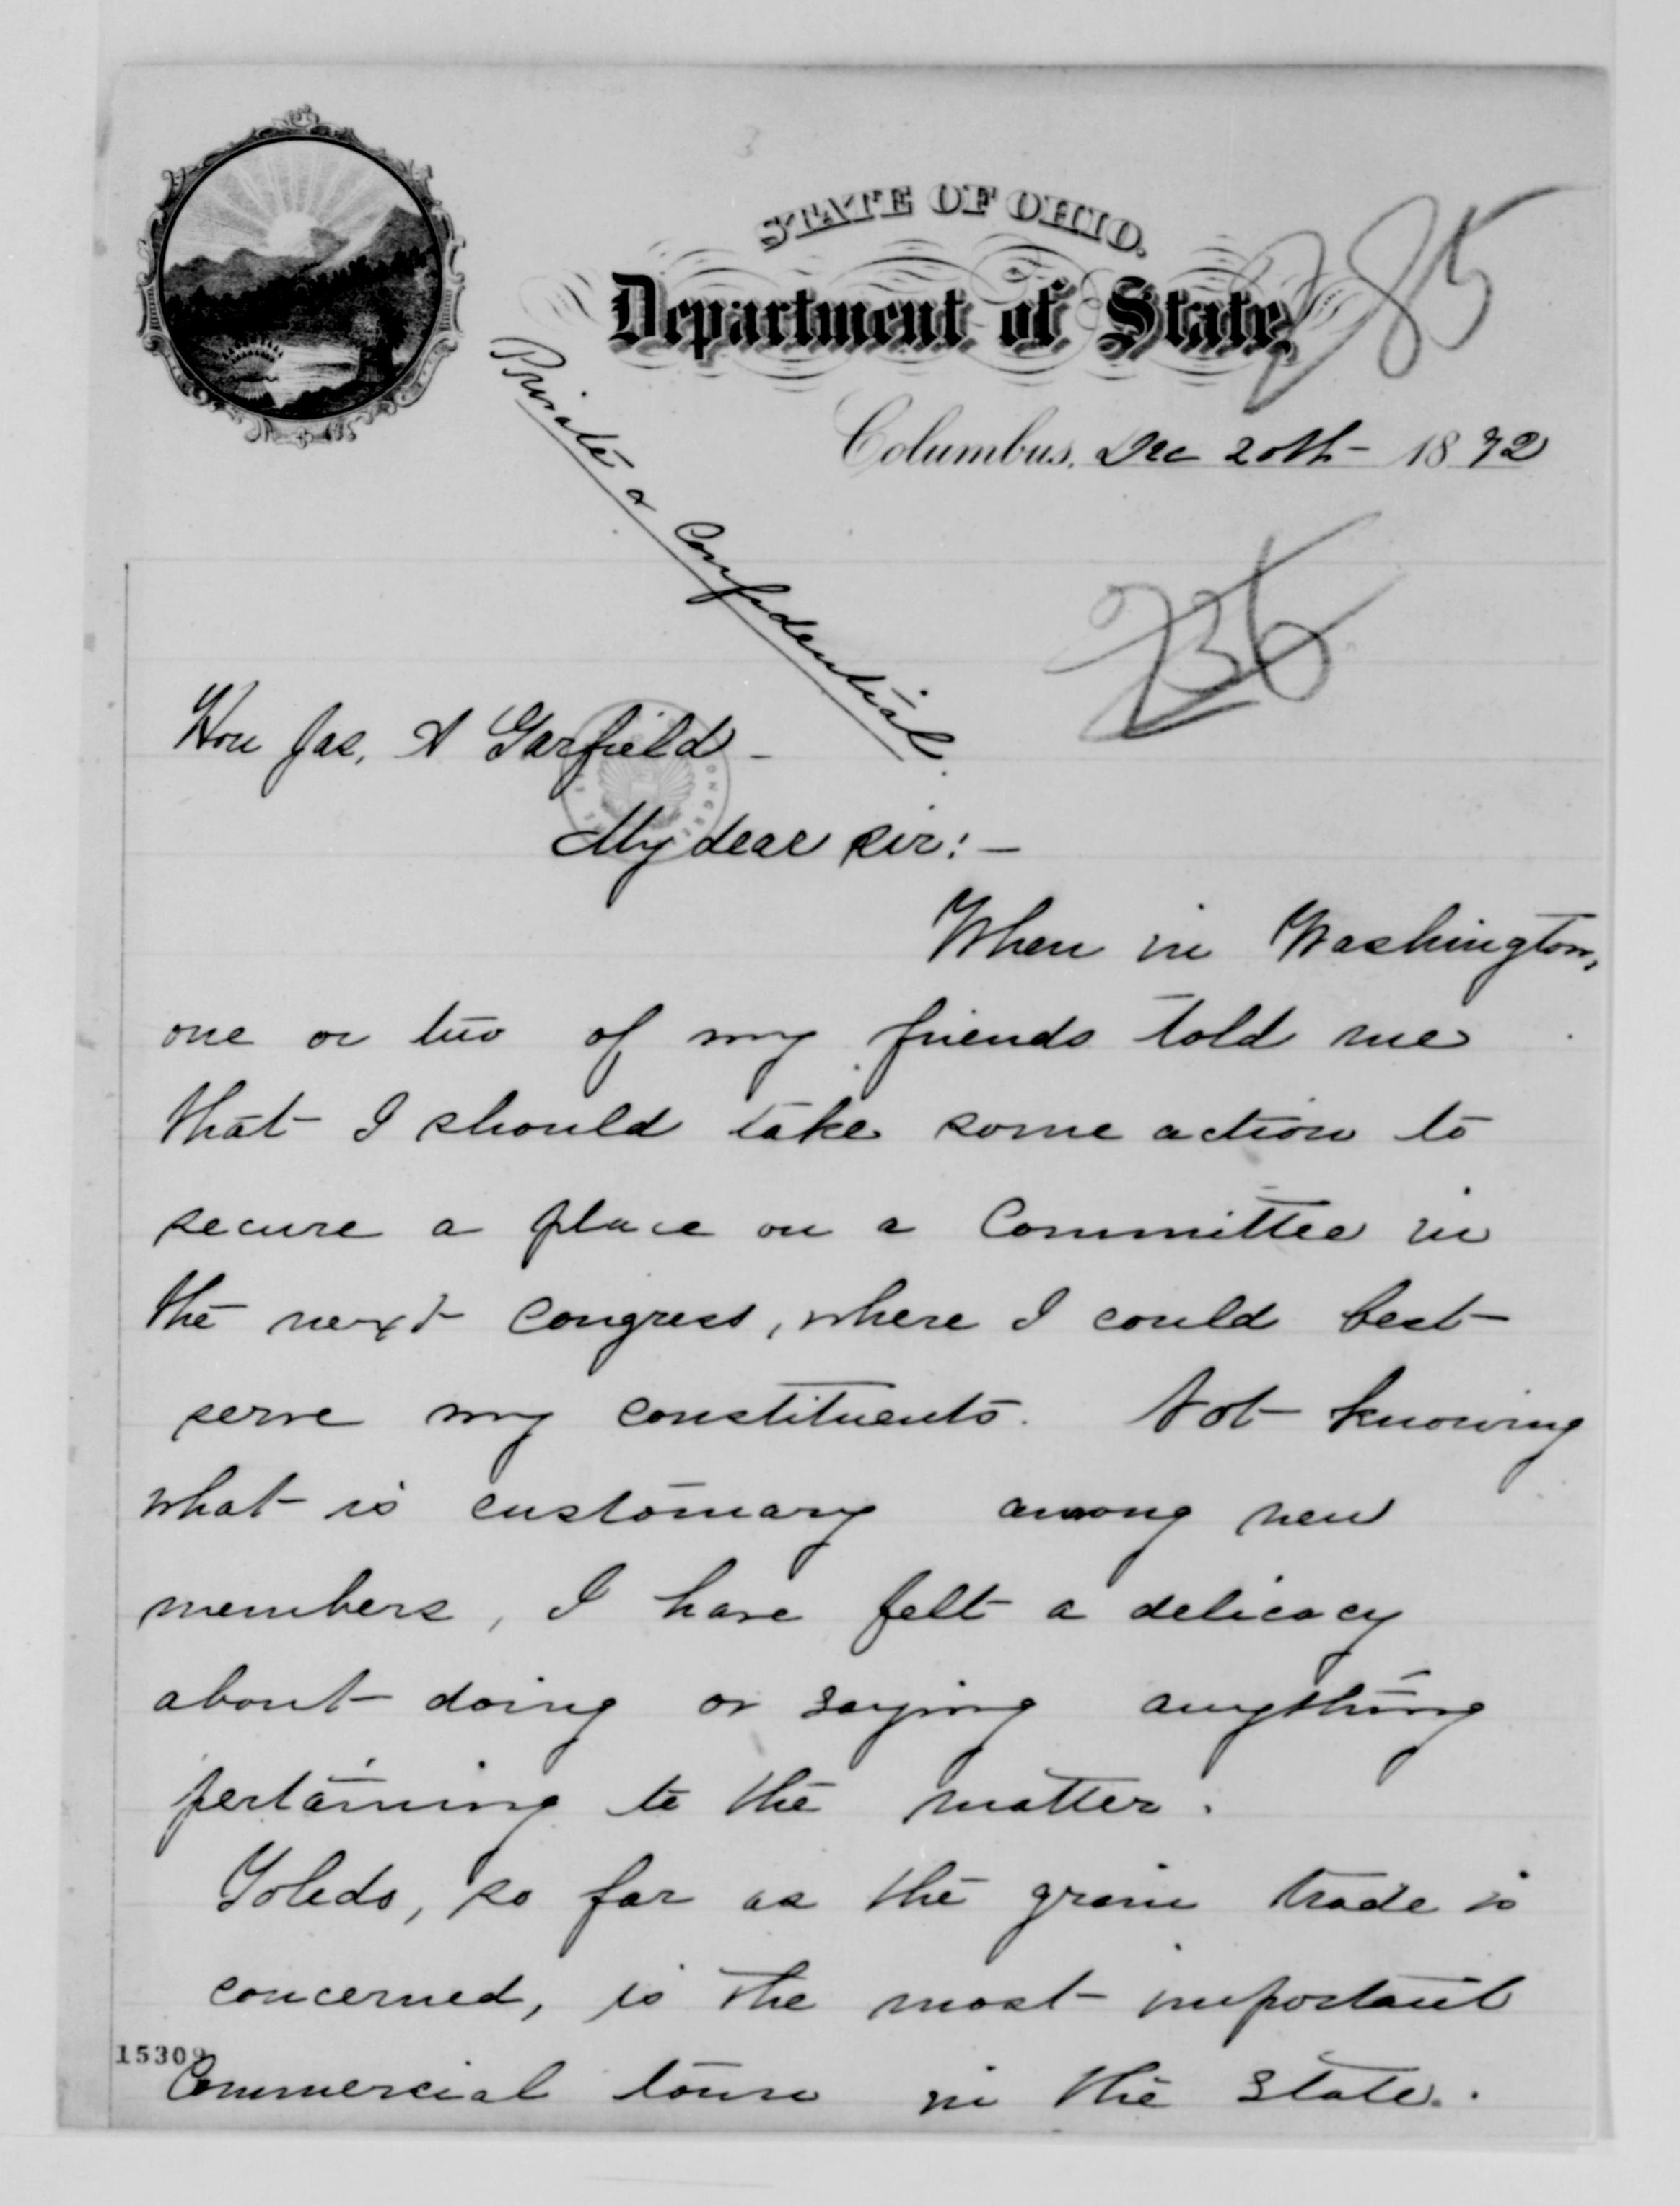 STATE OF OHIO.
285
Department of State,
Columbus, Dec 20th - 1872
Private & Confidential.
236
Hon Jas. A Garfield -
My dear sir: -
When in Washington,
one or two of my friends told me
that I should take some action to
secure a place on a Committee in
the next Congress, where I could best
serve my constituents. Not knowing
what is customary among new
members, I have felt a delicacy
about doing or saying anything
pertaining to the matter.
Toledo, so far as the grain trade is
concerned, is the most important
Commercial town in the State.
15309